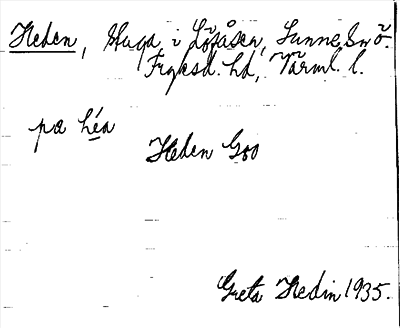 Heden, stuga i Löfåsen, Sunne sn ö.
Fryksd. hd, Värml. l.
pœ héa
Heden Goo
Greta Hedin 1935.